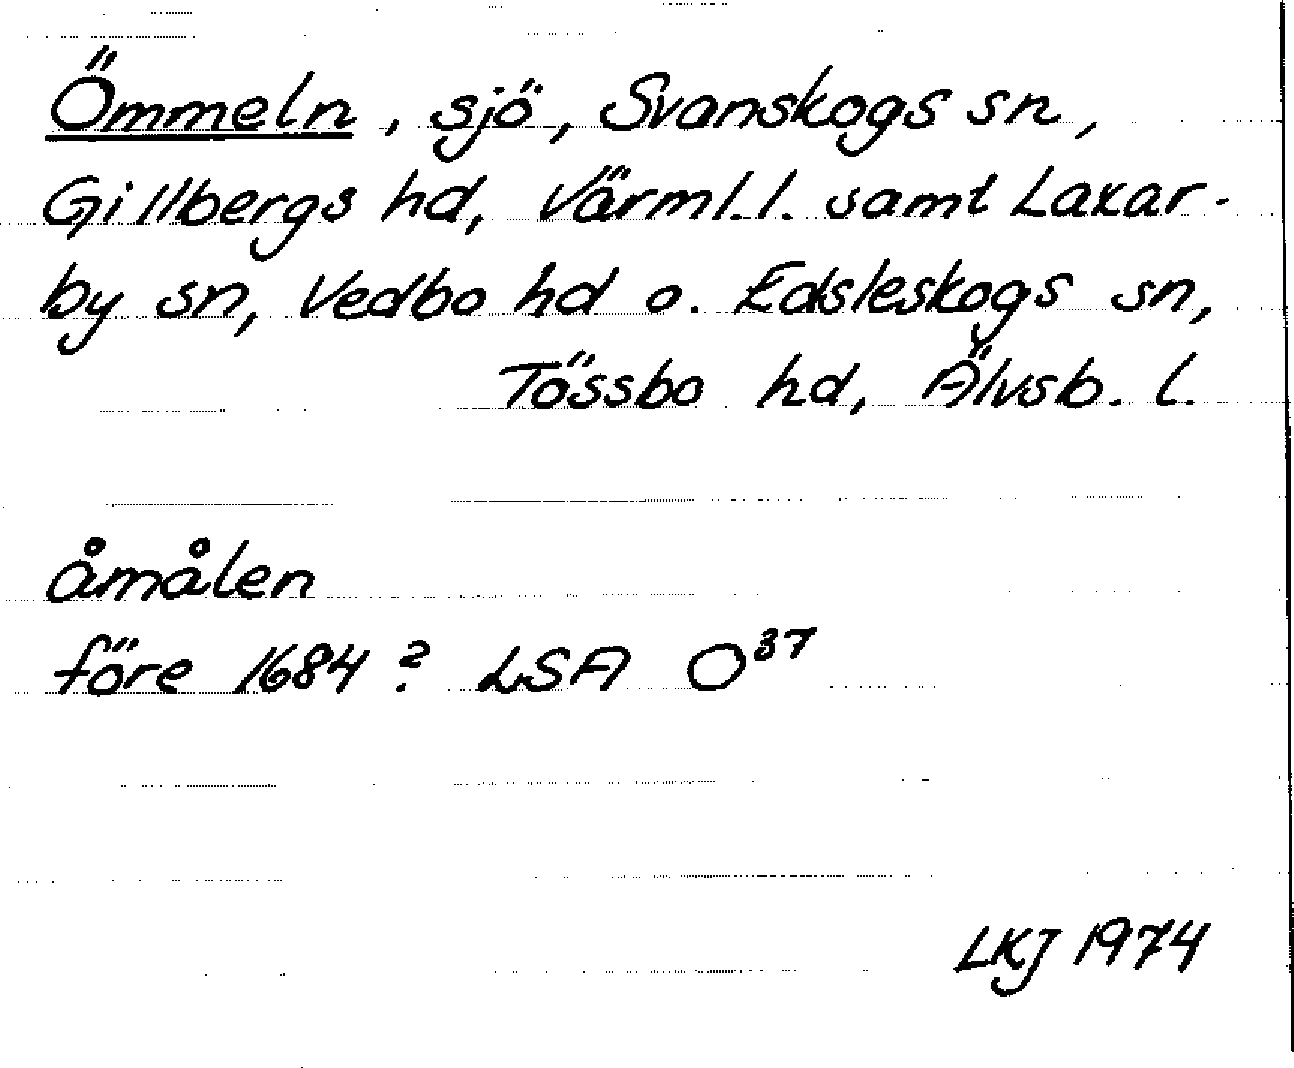 Ömmeln, sjö, Svanskogs sn,
Gillbergs hd, Värml.l. samt Laxar-
by sn, Vedbo hd o. Edsleskogs sn,
Tössbo hd, Älvsb. l.
åmålen
före 1684? LSA O³⁷
LKJ 1974